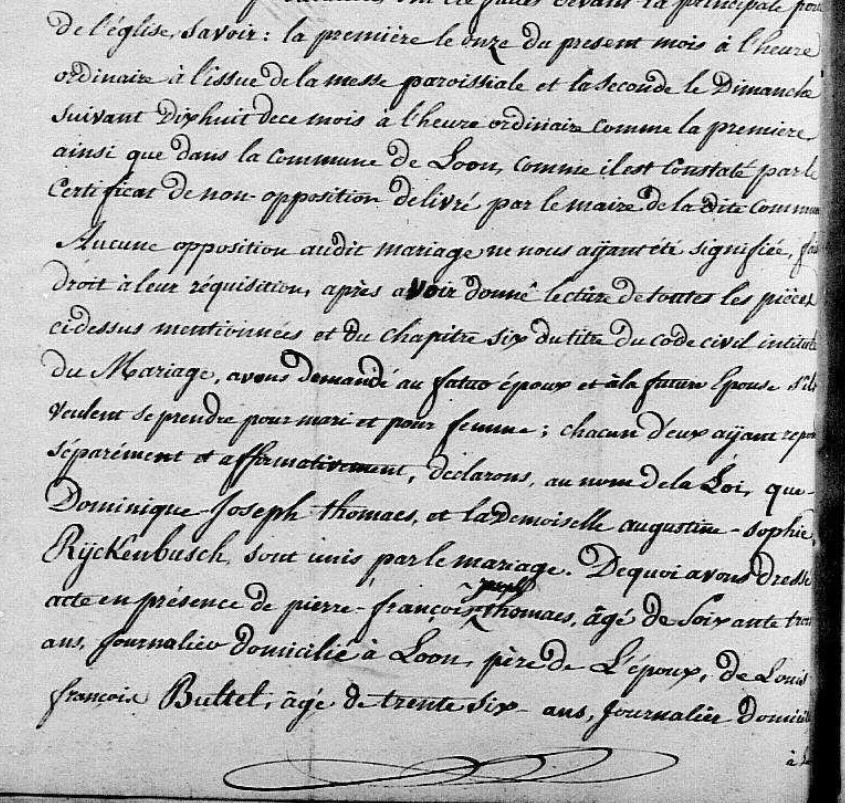 ont été faites devant la principale porte
de l'église, savoir : la première le onze du present mois à l'heure
ordinaire à l'issue de la messe paroissiale et la seconde le Dimanche
suivant Dixhuit de ce mois à l'heure ordinaire comme la première,
ainsi que dans la commune de Loon, comme il est constaté par le
certificat de non-opposition délivré par le maire de la dite commun
Aucune opposition audit mariage ne nous ayant été signifiée, fai
droit à leur réquisition, après avoir donné lecture de toutes les pièces
cidessus mentionnées et du chapitre six du titre du code civil intitulé
du Mariage, avons demandé au futur époux et à la future Epouse s'ils
veulent se prendre pour mari et pour femme ; chacun d'eux ayant repon
séparément et affirmativement, déclarons, au nom de la Loi, que
Dominique-Joseph thomaes, et la demoiselle augustine-sophie,
Rÿckenbusch, sont unis par le mariage. De quoi avons dressé
acte en présence de pierre-françois joseph thomaes, âgé de soixante trois
ans, journalier domicilié à Loon, père de L'époux, de Louis
françois Bultel, âgé de trente six ans, journalier domicilié
à